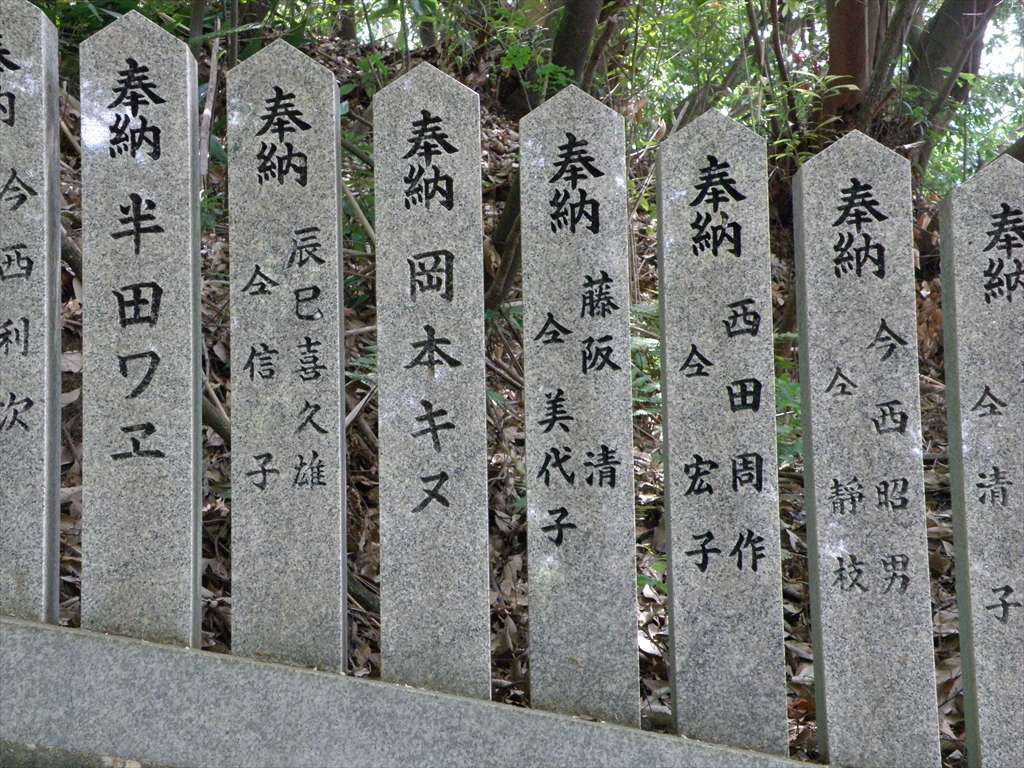 奉納
仝 清子
奉納
今西昭男
仝 靜枝
奉納
西田周作
仝 宏子
奉納
藤阪 清
仝 美代子
奉納 岡本キヌ
奉納
辰巳喜久雄
仝 信子
奉納 半田ワヱ
今西利次